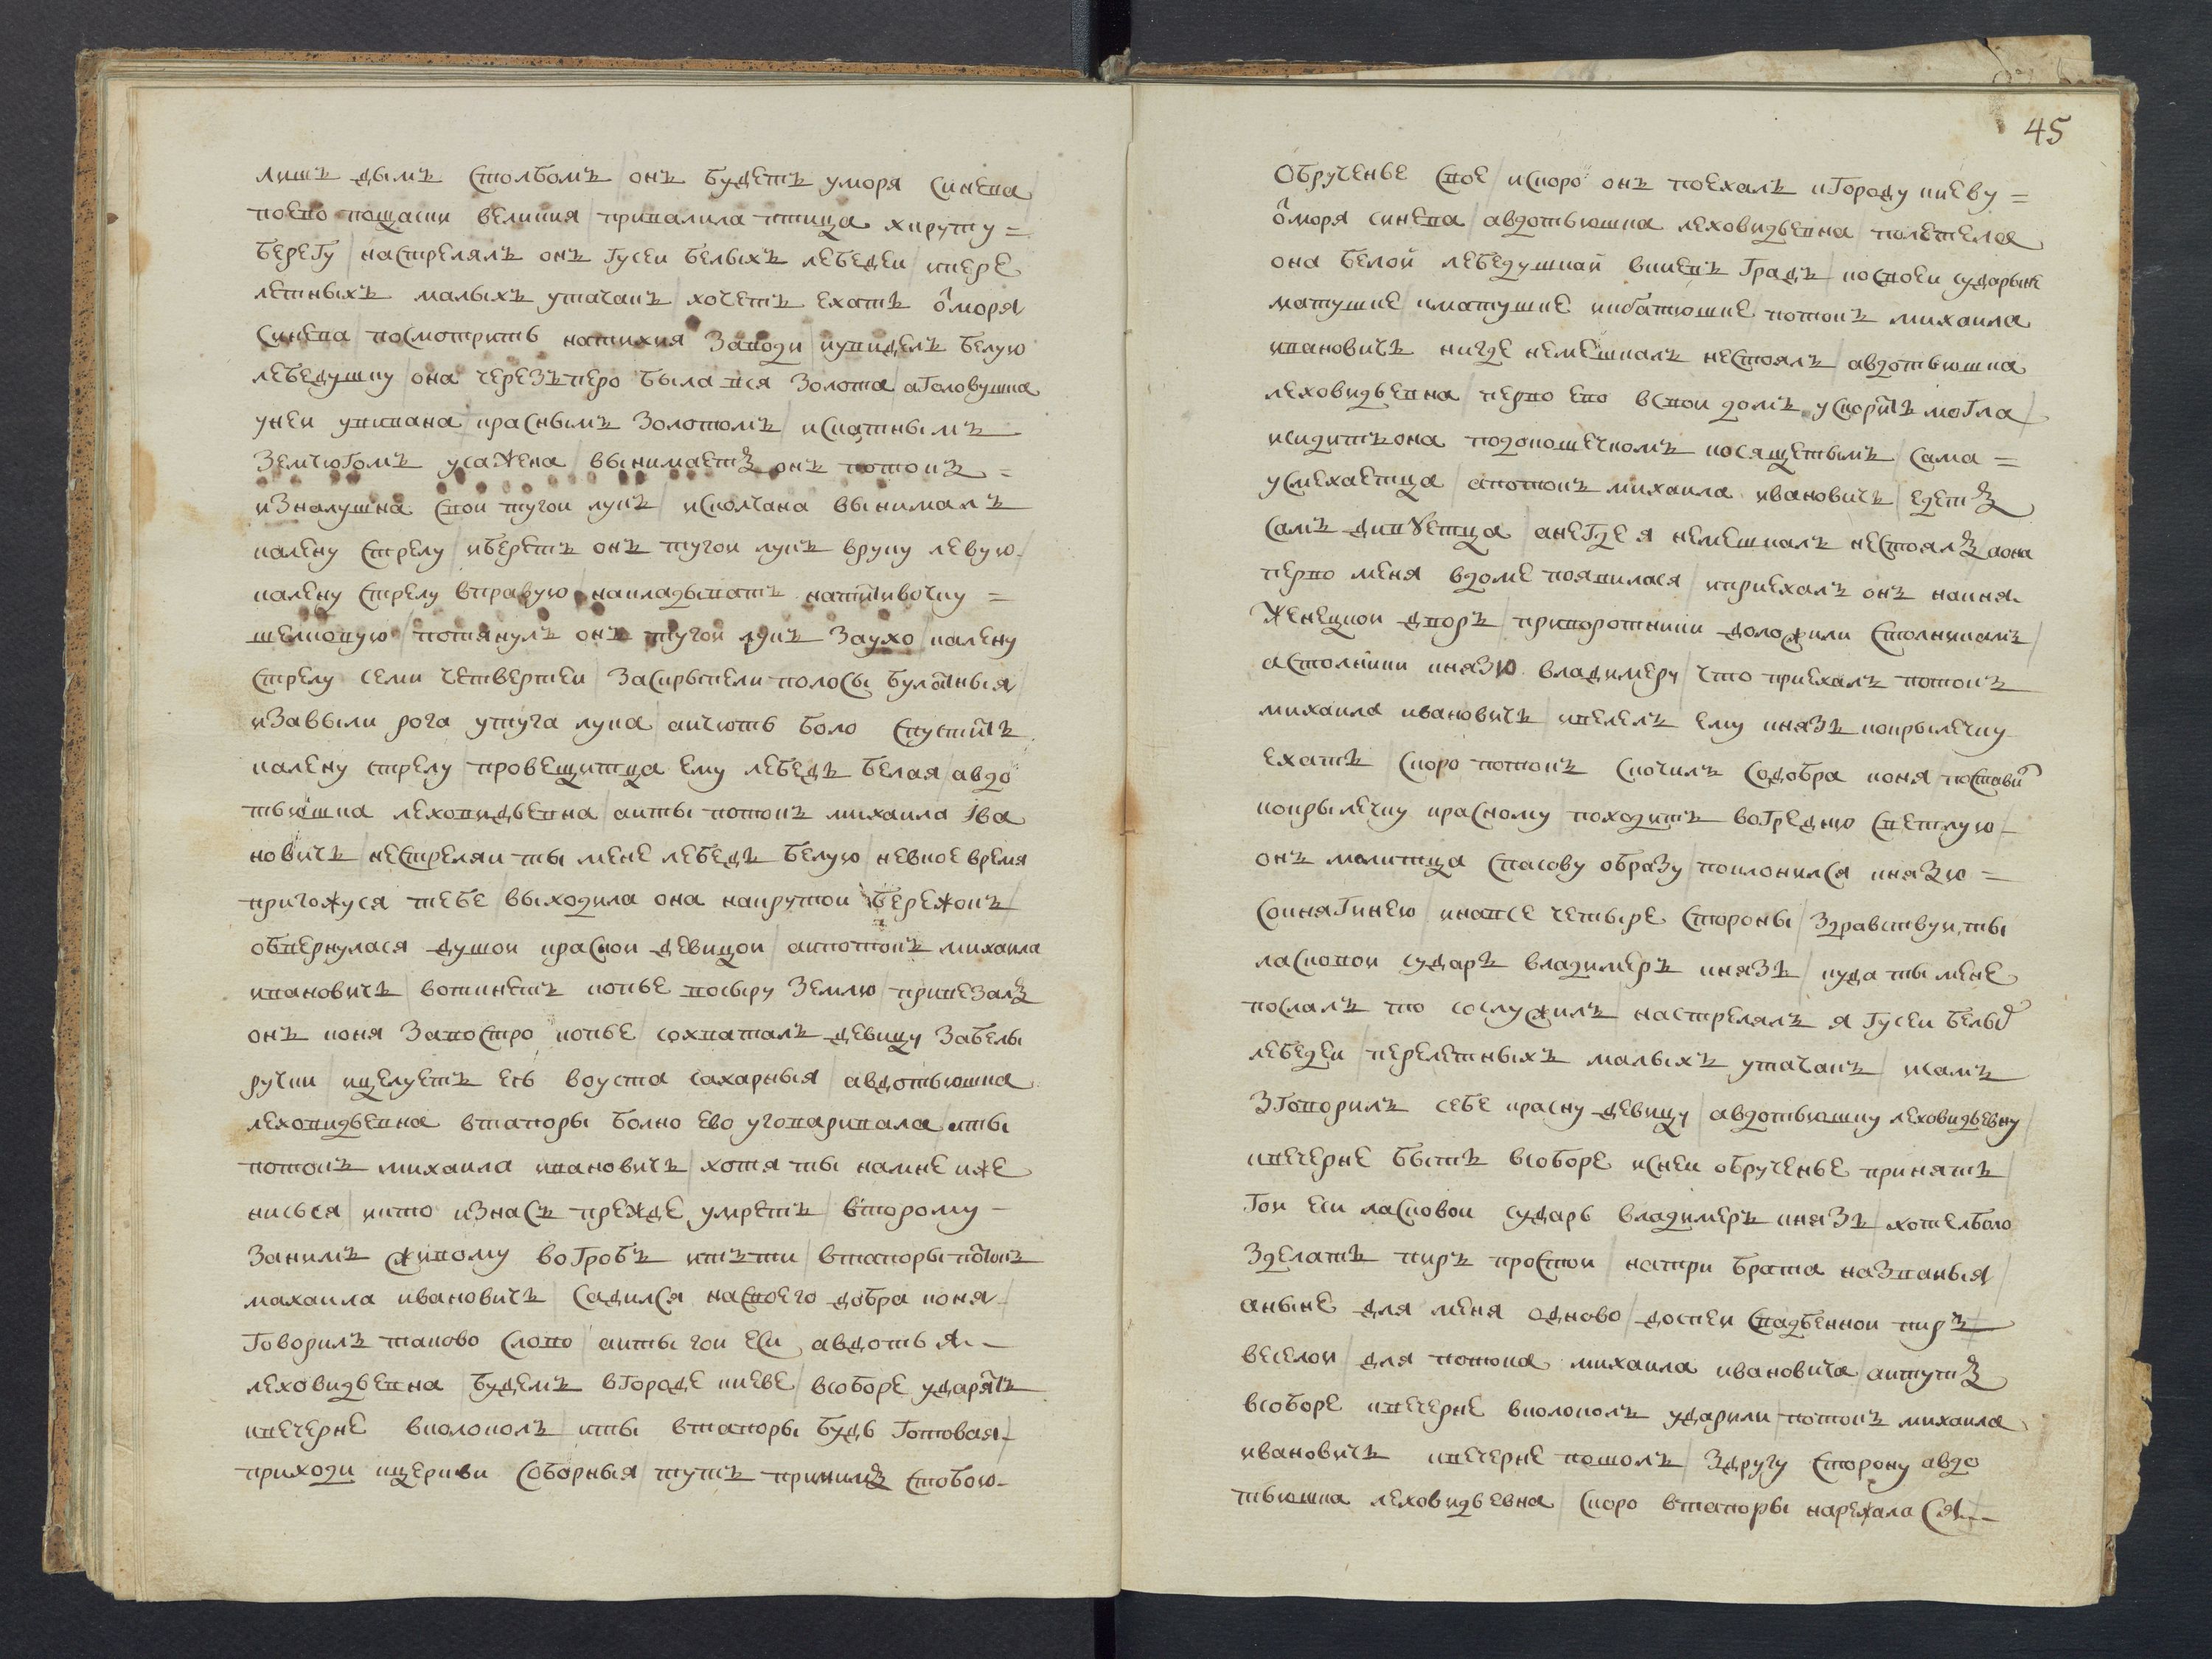 лишъ дымъ столбомъ / онъ будетъ уморя синева
поево пощаски великия / привалила птица хкруту =
берегу / настрелялъ онъ гусеи белыхъ лебедеи / ипере
летныхъ малыхъ утачакъ / хочетъ ехатъ ѿморя
синева посмотрить натихия заводи / иувиделъ белую
лебедушку / она черезъперо была вся золота / аголовушка
унеи увивана / красныимъ золотомъ / искатныимъ
земчюгомъ усажена / вынимаетъ онъ потокъ =
изналушна свои тугои лукъ / исколчана вынималъ
калену стрелу / иберетъ онъ тугои лукъ вруку левую /
калену стрелу вправую / накладываетъ натетивочку =
шелковую / потянулъ онъ тугои лукъ заухо / калену
стрелу семи четвертеи / заскрыпели полосы булатныя /
изавыли рога утуга лука / аичють боло спустить
калену стрелу / провещитца ему лебедъ белая / авдо
тьюшка леховидьевна / аиты потокъ михаила iва
новичъ / нестреляи ты мене лебедъ белую / невкое время
пригожуся тебе / выходила она накрутои бережокъ /
обвернулася душои краснои девицои / аипотокъ михаила
ивановичъ / воткнетъ копье восыру землю / привезалъ
онъ коня завостро копье / сохваталъ девицу забелы
ручки / ицелуетъ еѣ воуста сахарныя / авдотьюшка
леховидьевна втапоры болно ево уговаривала / иты
потокъ михаила ивановичъ / хотя ты намне иже
нисься / икто изнасъ прежде умретъ / второму –
занимъ живому вогробъ иттъти / втапоры потокъ
махаила ивановичъ / садился насвоего добра коня /
говорилъ таково слово / аиты гои еси авдотья –
леховидьевна / будемъ вгороде киеве / всоборе ударятъ
квечерне вколоколъ / иты втапоры будь готовая /
приходи кцеркви соборныя / тутъ примимъ стобою –
45
обрученье свое / искоро онъ поехалъ кгороду киеву =
ѿморя синева / авдотьюшка леховидьевна / полетела
она белой лебедушкай вкиевъ градъ / косвоеи сударыне
матушке / кматушке икбатюшке / потокъ михаила
ивановичъ / нигде немешкалъ нестоялъ / авдотьюшка
леховидьевна / перво ево всвои домъ ускорить могла /
исидитъона подокошечкомъ косящетымъ / сама =
усмехаетца / апотокъ михаила ивановичъ / едетъ
самъ дивуетца / анегде я немешкалъ нестоялъ / аона
перво меня вдоме появилася / иприехалъ онъ накня
женецкои дворъ / приворотники доложили столникамъ /
астолники князю владимеру / что приехалъ потокъ
михаила ивановичъ / ивелелъ ему князъ кокрылечку
ехатъ / скоро потокъ скочилъ содобра коня / поставил
кокрылечку красному / походитъ вогредню светлую –
онъ молитца спасову образу / поклонился князю =
сокнягинею / инавсе четыре стороны / здравствуи ты
ласковои сударъ владимеръ князъ / куда ты мене
послалъ то сослужилъ / настрелялъ я гусеи белых
лебедеи / перелетныхъ малыхъ утачакъ / исамъ
зговорилъ себе красну девицу / авдотьюшку леховидьевну /
квечерне бытъ всоборе / иснеи обрученье принятъ /
гои еси ласковои сударь владимеръ князъ / хотелболо
зделатъ пиръ простои / натри брата названыя /
аныне для меня одново / доспеи свадьеннои пиръ /
веселои / для потока михаила ивановича / аитутъ
всоборе квечерне вколоколъ ударили / потокъ михаила
ивановичъ квечерне пошолъ / здругу сторону авдо
тьюшка леховидьевна / скоро втапоры нарежалася –